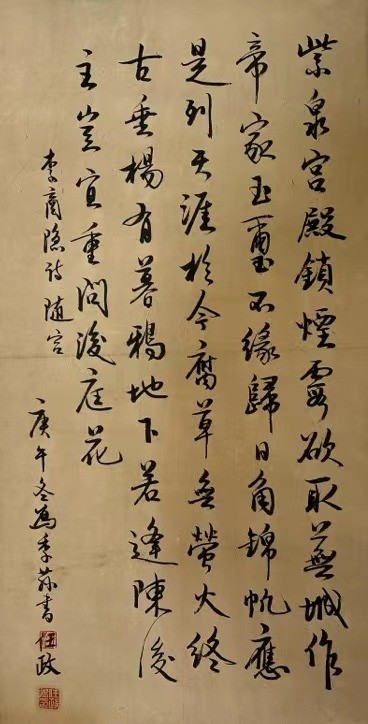 紫泉宮殿鎖煙霞欲取蕪城作
帝家玉璽不緣歸日角錦帆應
是到天涯於今腐草無螢火終
古垂楊有暮鴉地下若逢陳後
主豈宜重問後庭花
李商隱詩隨宮
庚午冬為季蓀書任政